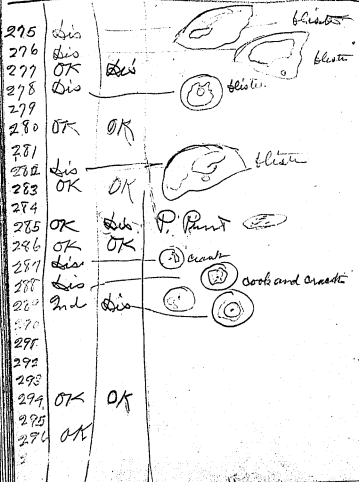 275 Dis bliste
276 Dis bliste
277 OK Dis
278 Dis bliste
279
280 OK OK
281
282 Dis bliste
283 OK OK
284
285 OK Dis P.
286 OK OK
287 Dis crack
288 Dis cook and crack
289 2nd Dis
290
291
292
293
294 OK OK
295
296 OK